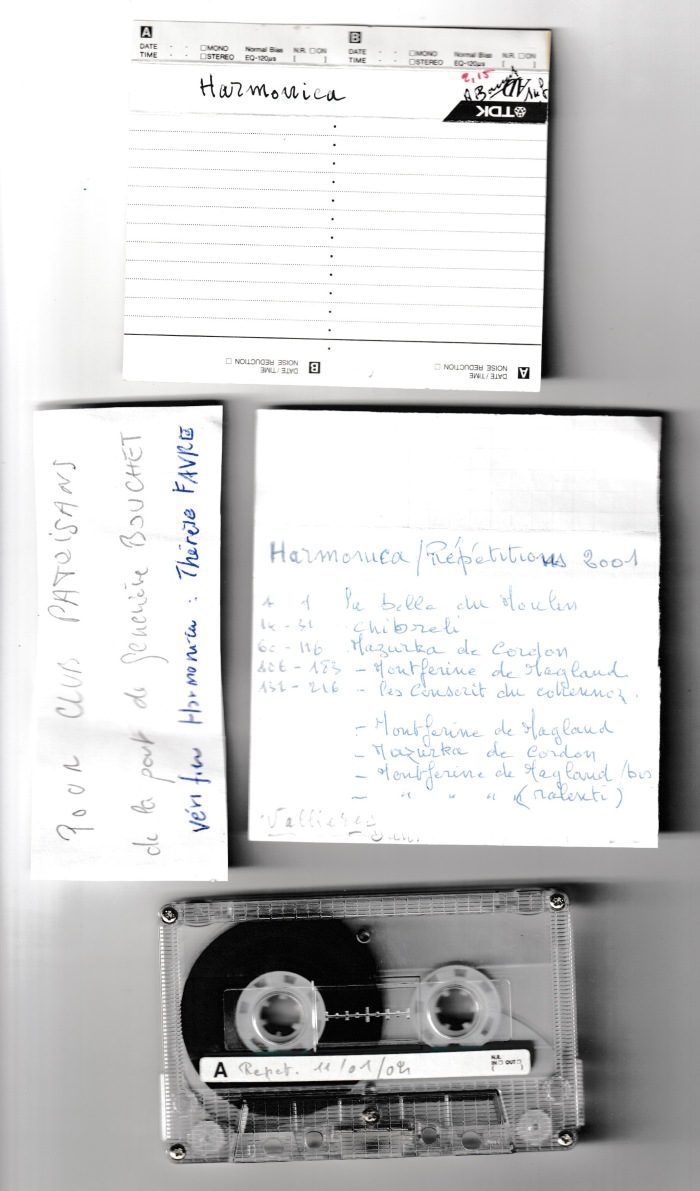 A
DATE - - □MONO Normal Bias N.R. □ON
TIME □STEREO EQ-120μs [ ]
B
DATE - - □MONO Normal Bias N.R. □ON
TIME □STEREO EQ-120μs [ ]
2,15
Harmonica
TDK
A DATE / TIME
NOISE REDUCTION □
B DATE / TIME
NOISE REDUCTION □
POUR CLUB PATOISANS
de la part de Geneviève BOUCHET
vérifier Harmonica : Thérèse FAVRE
Harmonica/Répétitions 2001
1 La belle du Moulin
14 - 31 Chibreli
60 - 116 Mazurka de Cordon
- 183 - Montferine de Magland
- 216 - Les Conscrit du
- Montferine de Magland
- Mazurka de Cordon
- Montferine de Magland /bis
- " " " (ralenti)
Vallières
A Repet. 11/01/02
N.R.
IN □ OUT □